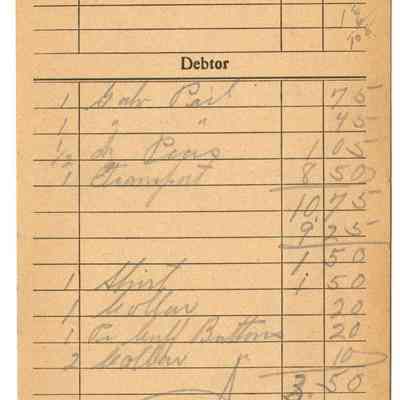 1
10
Debtor
1 Galv Pail 75
1 " " 45
1/2 Pens 1 05
1 Transport 8 50
10.75
9 25
1 50
1 Shirt 1 50
1 Collar 20
1 Pr Cuff Buttons 20
2 Collar 10
3.50